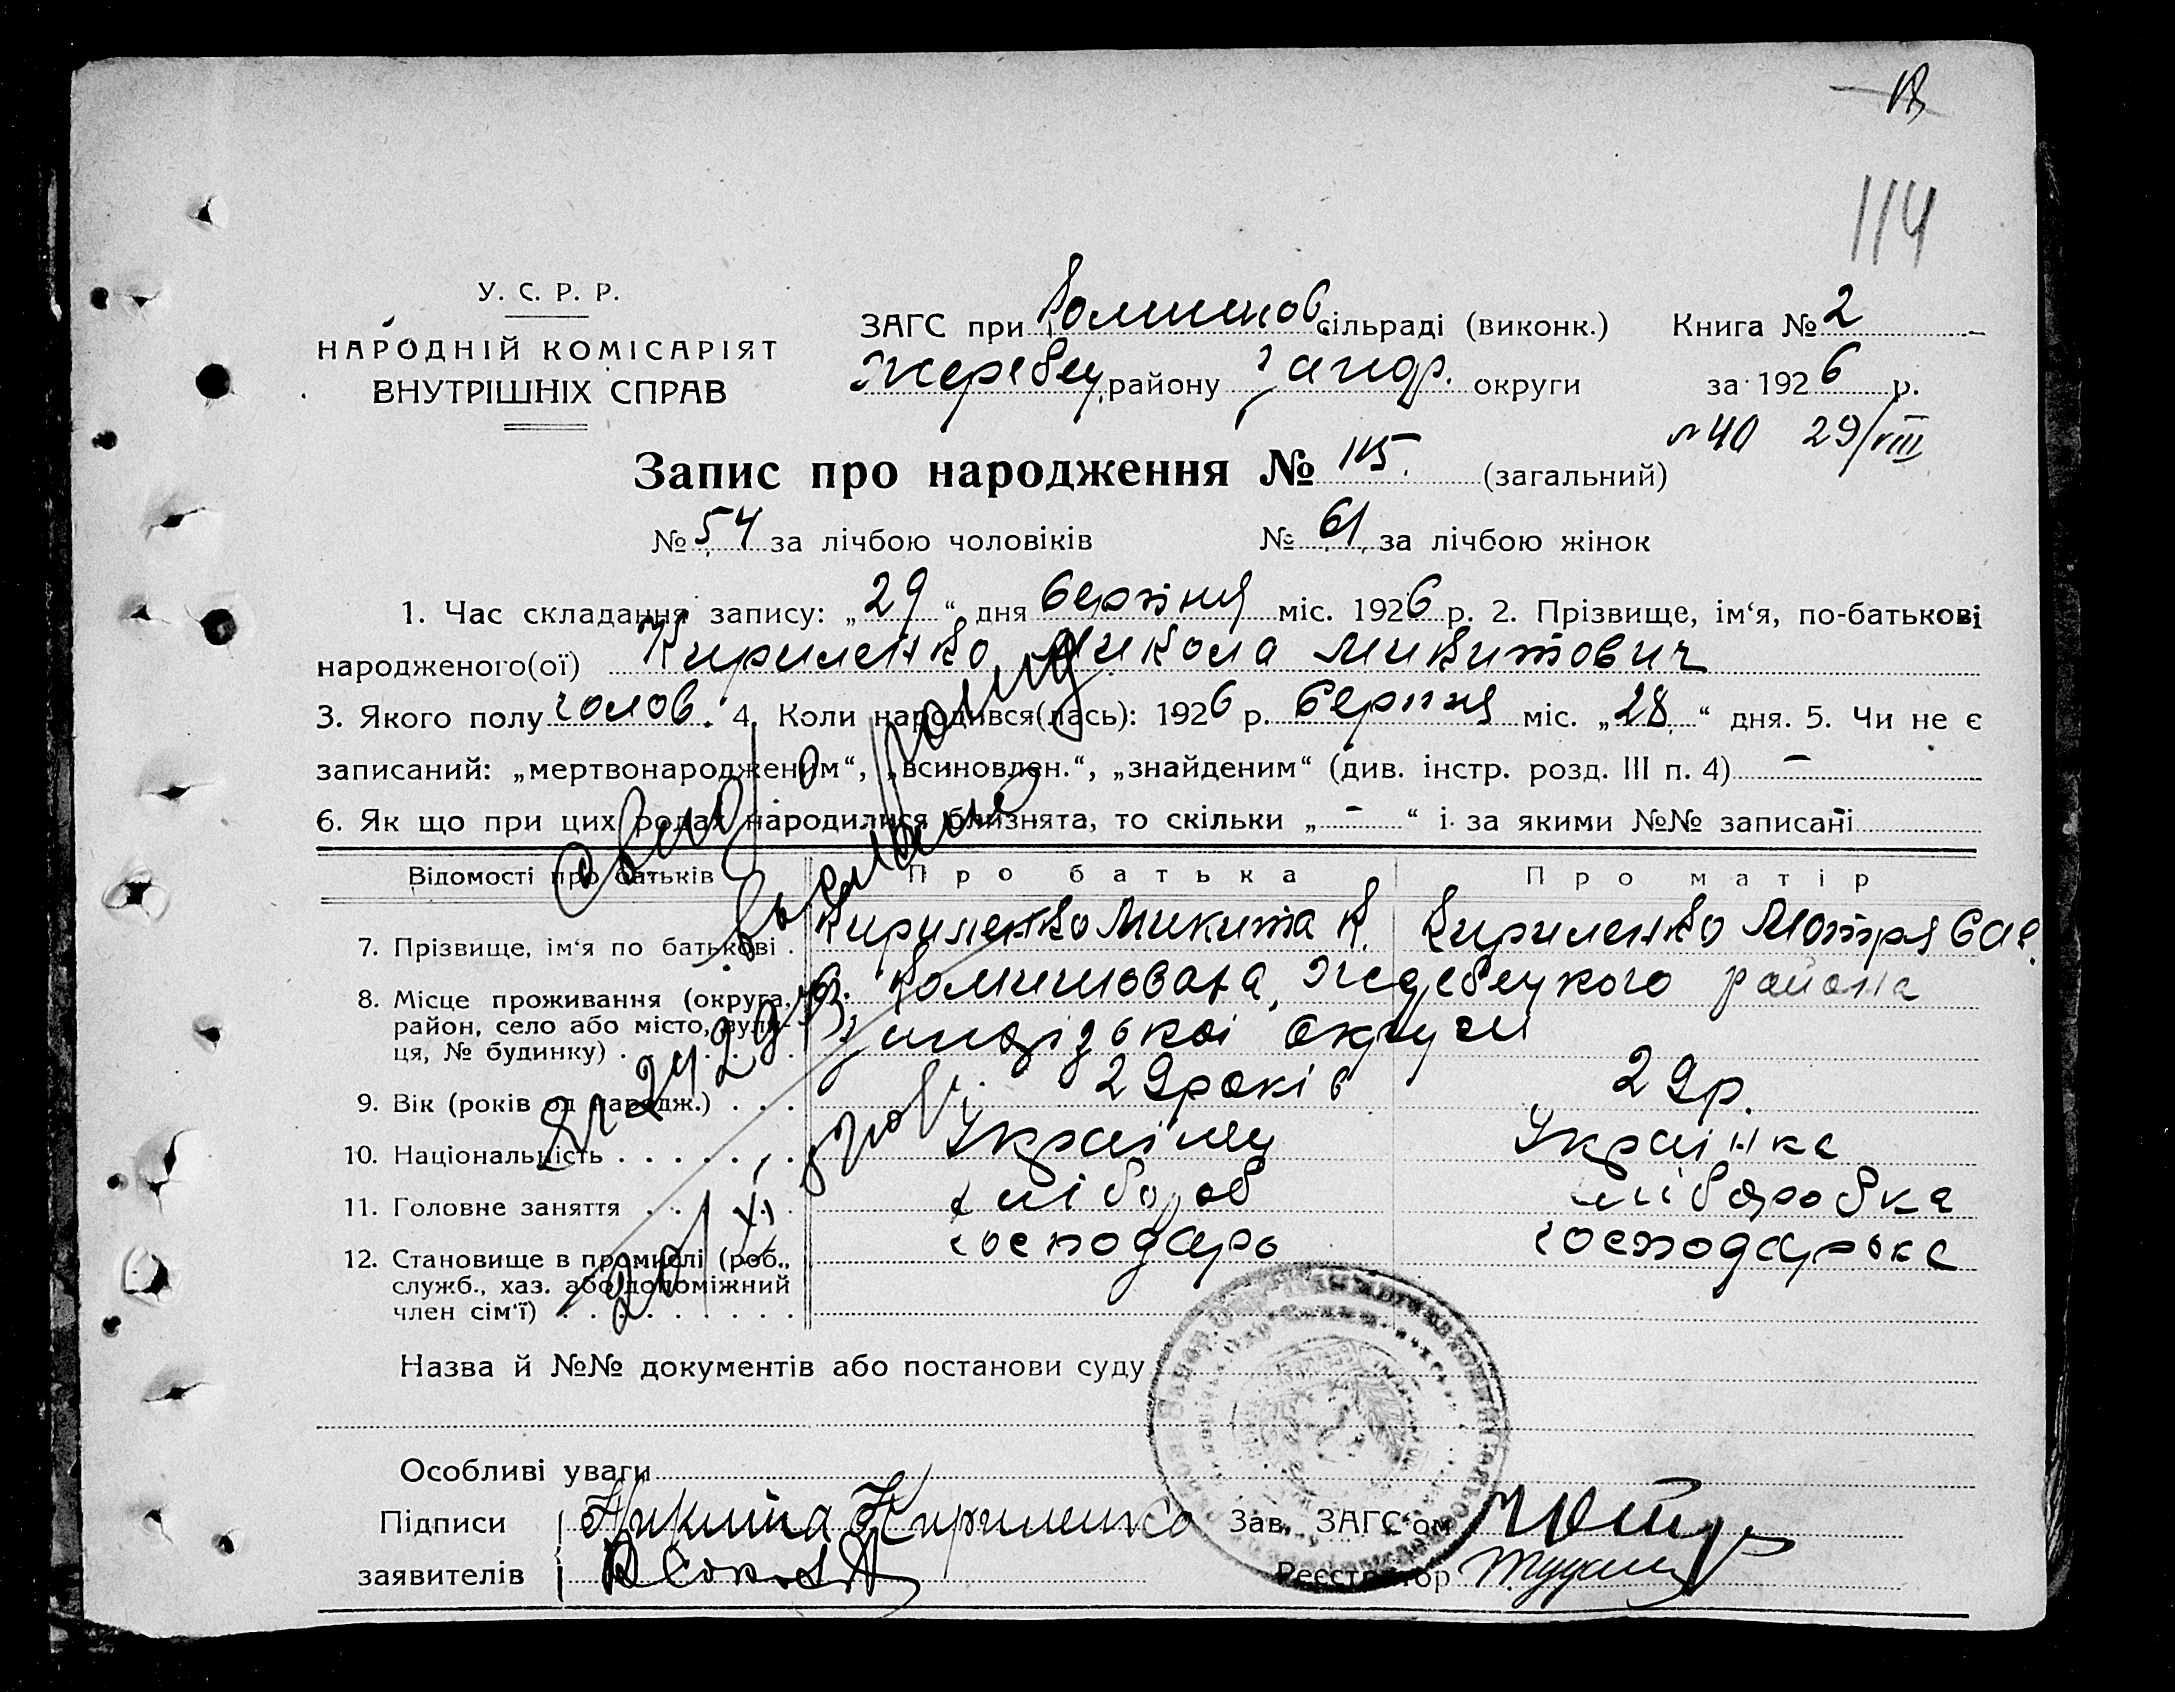 114
У. С. Р. Р.
НАРОДНІЙ КОМІСАРІЯТ
ВНУТРІШНІХ СПРАВ
ЗАГС при Комишов сільраді (виконк.) Книга № 2
Жеребец. району Запор. округи за 1926 р.
№ 40 29/VIII
Запис про народження № 115. (загальний)
№ 54 за лічбою чоловіків № 61 за лічбою жінок
1. Час складання запису: „ 29 “ дня серпня міс. 1926 р. 2. Прізвище, ім‘я, по-батькові
народженого(ої) Кириленко Микола Микитович
3. Якого полу чолов. 4. Коли народився(лась): 1926 р. серпня міс. „ 28 “ дня. 5. Чи не є
записаний: „мертвонародженим“, „всиновлен.“, „знайденим“ (див. інстр. розд. III п. 4) –
6. Як що при цих родах народилися близнята, то скільки „ – “ і за якими №№ записані –
Відомості про батьків Про батька Про матір
7. Прізвище, ім‘я по батькові . Кириленко Микита К. Кириленко Мотря Сав.
8. Місце проживання (округа, район, село або місто, вули- ця, № будинку) . . . . .
с. Комишоваха, Жеребецкого района
Запорізької округи
9. Вік (років од народж.) . . . 29 років 29 р.
10. Національність . . . . . . . Українец Українка
11. Головне заняття . . . . . . хлібороб хліборобка
12. Становище в промислі (роб., служб., хаз. або допоміжний член сім‘ї) . . . . . . . . .
господарь господарька
Свид. о рожд.
выдано
Назва й №№ документів або постанови суду
Особливі уваги
Підписи Никита Кириленко Зав. ЗАГС‘ом
заявителів Реєстратор